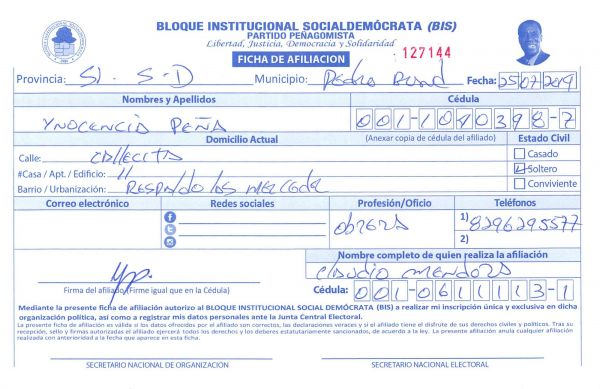 BLOQUE INSTITUCIONAL SOCIALDEMÓCRATA (BIS)
PARTIDO PEÑAGOMISTA
Libertad, Justicia, Democracia y Solidaridad
FICHA DE AFILIACION
127144
Provincia: Municipio: Pedro Brand Fecha: 25/07/2019
Nombres y Apellidos Cédula
YNOCENCIA PEÑA 001-1090398-7
Domicilio Actual (Anexar copia de cédula del afiliado) Estado Civil
Calle: CALLECITA Casado
#Casa / Apt. / Edificio: 11 Soltero
Barrio / Urbanización: RESPALDO LOS Conviviente
Correo electrónico Redes sociales Profesión/Oficio Teléfonos
OBRERA 1) 8296295577
2)
Nombre completo de quien realiza la afiliación
CLAUDIO MENDOZA
Firma del afiliado (Firme igual que en la Cédula) Cédula: 001-0611113-1
Mediante la presente ficha de afiliación autorizo al BLOQUE INSTITUCIONAL SOCIAL DEMÓCRATA (BIS) a realizar mi inscripción única y exclusiva en dicha
organización política, así como a registrar mis datos personales ante la Junta Central Electoral.
La presente ficha de afiliación es válida si los datos ofrecidos por el afiliado son correctos, las declaraciones veraces y si el afiliado tiene el disfrute de sus derechos civiles y políticos. Tras su
recepción, sello y firmas autorizadas el afiliado ejercerá todos los derechos y los deberes estatutariamente sancionados, de acuerdo a la ley. La presente afiliación anula cualquier afiliación
realizada con anterioridad a la fecha que aparece en esta ficha.
SECRETARIO NACIONAL DE ORGANIZACIÓN SECRETARIO NACIONAL ELECTORAL